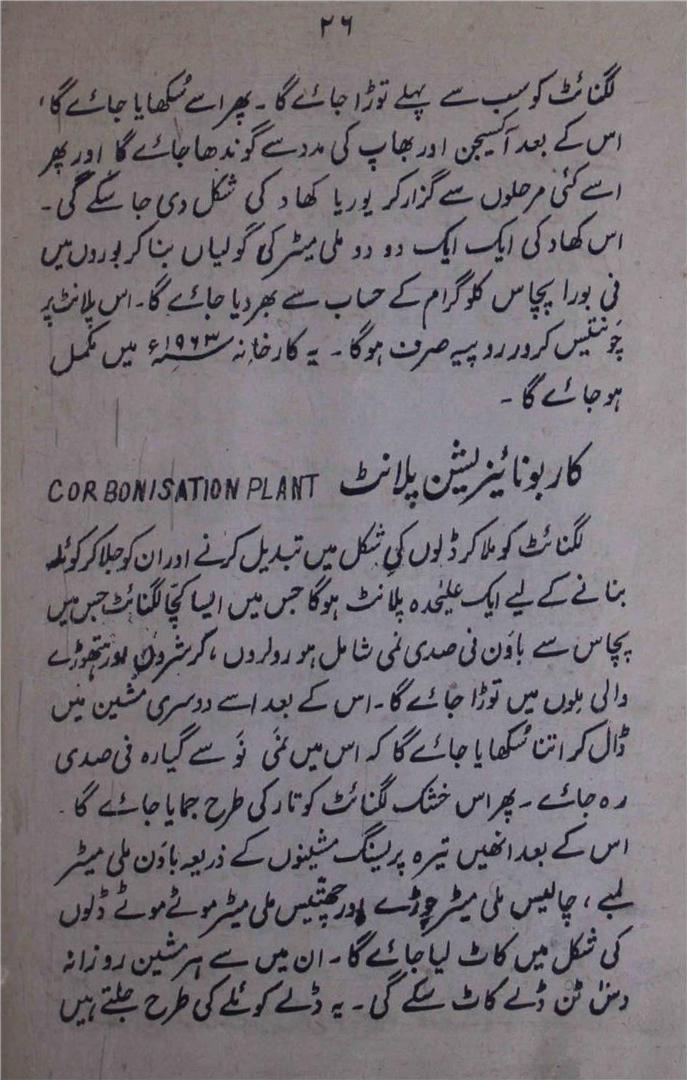 ۲۶
لگنائٹ کو سب سے پہلے توڑا جائے گا ۔ پھر اسے سُکھایا جائے گا ،
اس کے بعد آکسیجن اور بھاپ کی مدد سے گوندھا جائے گا اور پھر
اسے کئی مرحلوں سے گزار کر یوریا کھاد کی شکل دی جا سکے گی ۔
اس کھاد کی ایک ایک دو دو ملی میٹر کی گولیاں بنا کر بوروں میں
فی بورا پچاس کلو گرام کے حساب سے بھر دیا جائے گا ۔ اس پلانٹ پر
چونتیس کرور روپیہ صرف ہوگا ۔ یہ کارخانہ ۱۹۶۳ء میں مکمل
ہو جائے گا ۔
کاربونائیزیشن پلانٹ CORBONISATION PLANT
لگنائٹ کو ملا کر ڈلوں کی شکل میں تبدیل کرنے اور ان کو جلا کر کوئلہ
بنانے کے لیے ایک علیٰحدہ پلانٹ ہوگا جس میں ایسا کچّا لگنائٹ جس میں
پچاس سے باون فی صدی نمی شامل ہو رولروں ، کرشروں اور ہتھوڑے
والی ملوں میں توڑا جائے گا ۔ اس کے بعد اسے دوسری مشین میں
ڈال کر اتنا سُکھایا جائے گا کہ اس میں نمی نَو سے گیارہ فی صدی
رہ جائے ۔ پھر اس خشک لگنائٹ کو تار کی طرح جمایا جائے گا ۔
اس کے بعد انھیں تیرہ پریسنگ مشینوں کے ذریعہ باون ملی میٹر
لمبے ، چالیس ملی میٹر چوڑے اور چھتّیس ملی میٹر موٹے موٹے ڈلوں
کی شکل میں کاٹ لیا جائے گا ۔ ان میں سے ہر مشین روزانہ
دس ٹن ڈلے کاٹ سکے گی ۔ یہ ڈلے کوئلے کی طرح جلتے ہیں